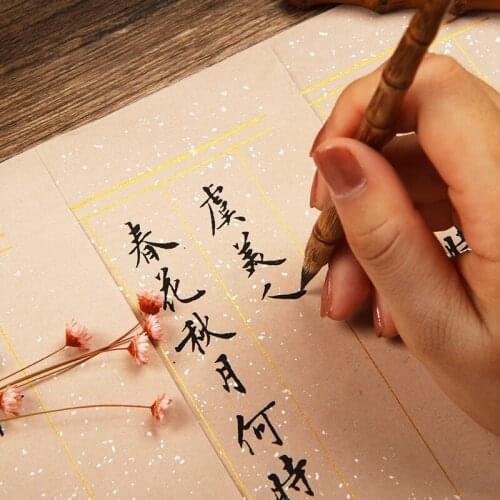 虞美人
春花秋月何時